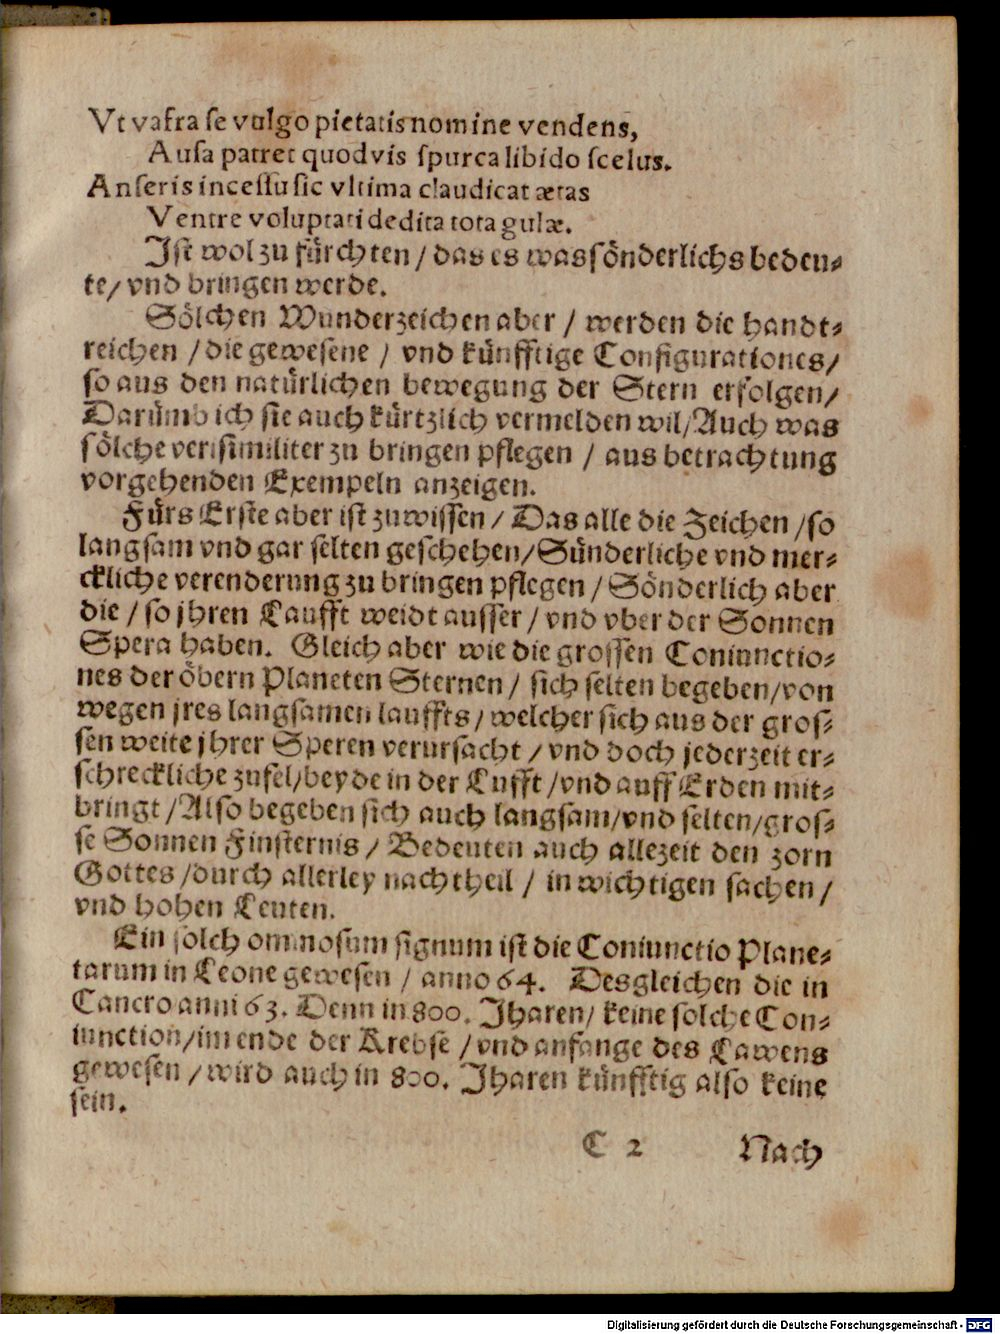 Vt vafra se vulgo pietatis nomine vendens,
Ausa patret quodvis spurca libido scelus.
Anseris incessu sic vltima claudicat ætas
Ventre voluptati dedita tota gulæ.
Ist wol zu fürchten / das es was sönderlichs bedeu-
te / vnd bringen werde.
Sölchen Wunderzeichen aber / werden die handt-
reichen / die gewesene / vnd künfftige Configurationes /
so aus den natürlichen bewegung der Stern erfolgen /
Darümb ich sie auch kürtzlich vermelden wil / Auch was
sölche verisimiliter zu bringen pflegen / aus betrachtung
vorgehenden Exempeln anzeigen.
Fürs Erste aber ist zuwissen / Das alle die Zeichen / so
langsam vnd gar selten geschehen / Sünderliche vnd mer-
ckliche verenderung zu bringen pflegen / Sönderlich aber
die / so jhren Laufft weidt ausser / vnd vber der Sonnen
Spera haben. Gleich aber wie die grossen Coniunctio-
nes der öbern Planeten Sternen / sich selten begeben / von
wegen jres langsamen lauffts / welcher sich aus der gros-
sen weite jhrer Speren verursacht / vnd doch jederzeit er-
schreckliche zufel / beyde in der Lufft / vnd auff Erden mit-
bringt / Also begeben sich auch langsam / vnd selten / gros-
se Sonnen Finsternis / Bedeuten auch allezeit den zorn
Gottes / durch allerley nachtheil / in wichtigen sachen /
vnd hohen Leuten.
Ein solch ominosum signum ist die Coniunctio Plane-
tarum in Leone gewesen / anno 64. Desgleichen die in
Cancro anni 63. Denn in 800. Jharen / keine solche Con-
iunction / im ende der Krebse / vnd anfange des Lawens
gewesen / wird auch in 800. Jharen künfftig also keine
sein.
C 2 Nach
Digitalisierung gefördert durch die Deutsche Forschungsgemeinschaft - DFG